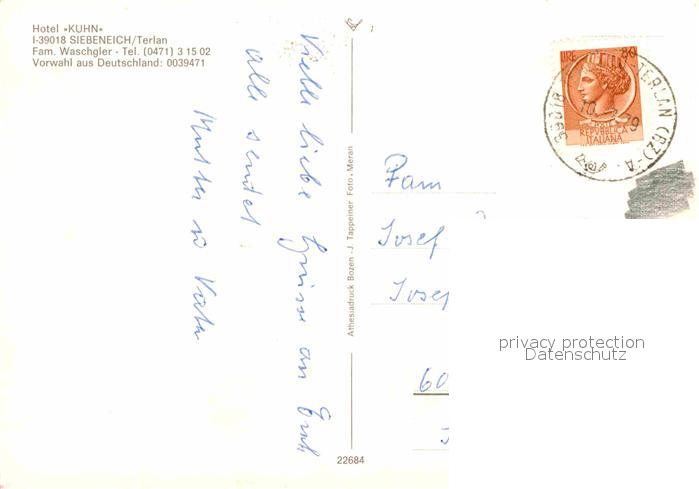 Hotel »KUHN«
I-39018 SIEBENEICH/Terlan
Fam. Waschgler - Tel. (0471) 3 15 02
Vorwahl aus Deutschland: 0039471
Vielle liebe Grüsse an Euch
alle sendet
Mutter u Vater
Athesiadruck Bozen - J. Tappeiner Foto, Meran
22684
LIRE 80
REPUBBLICA
ITALIANA
39018 TERLAN (BZ) - A
Fam
Josef
Josef
60
privacy protection
Datenschutz